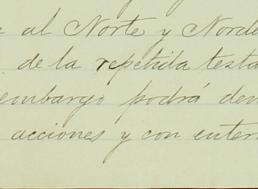 al Norte y Norde
de la repetida testa
embargo podrá den
acciones y con enter